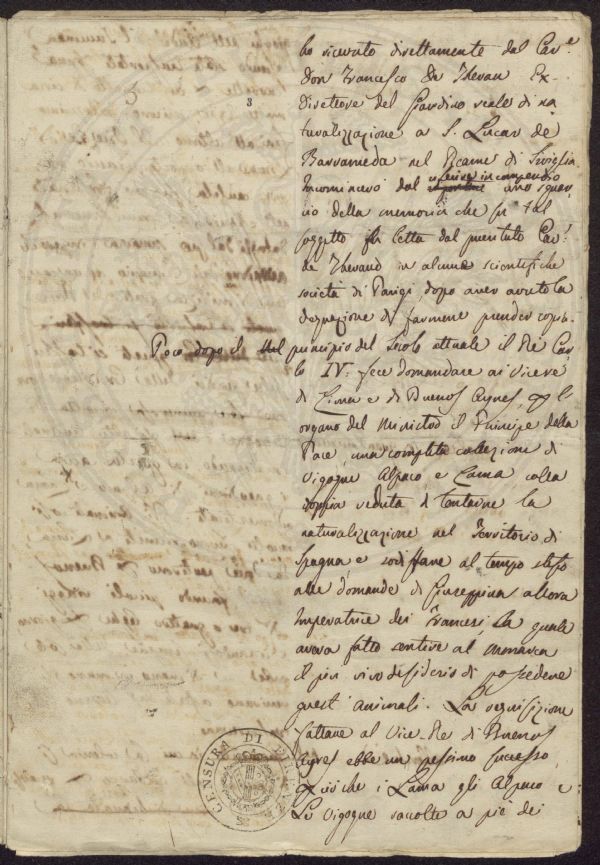 3
ho ricevuto direttamente dal Cav.e
Don Francesco de Theran Ex-
Direttore del Giardino reale di na
turalizzazione a S. Lucar de
Barrameda nel Reame di Siviglia
Incomincerò dal riferire in compendio uno squar
cio della memoria che fu tal
soggetto fu letta dal Cav.r
de Therand in alcune scientifiche
società di Parigi, dopo aver avuto la
degnazione di farmene prender copia.
Poco dopo il principio del Secolo attuale il Re Car
lo IV. fece domandare ai Vicerè
di Lima e di Buenos Ayres,
organo del Ministro il Principe della
Pace, una completa collezione di
Vigogne Alpaco e Lama colla
doppia veduta di tentarne la
naturalizzazione nel Territorio di
Spagna e sodisfare al tempo stesso
alle domande di Giuseppina allora
Imperatrice dei Francesi, la quale
aveva fatto sentire al monarca
il più vivo desiderio di possedere
quest'animali. La requisizione
fattane al Vice-Re di Buenos
Ayres ebbe un pessimo successo,
giacchè i Lama gli Alpaco e
Le Vigogne raccolte a piè dei
CENSURA DI FIRENZE